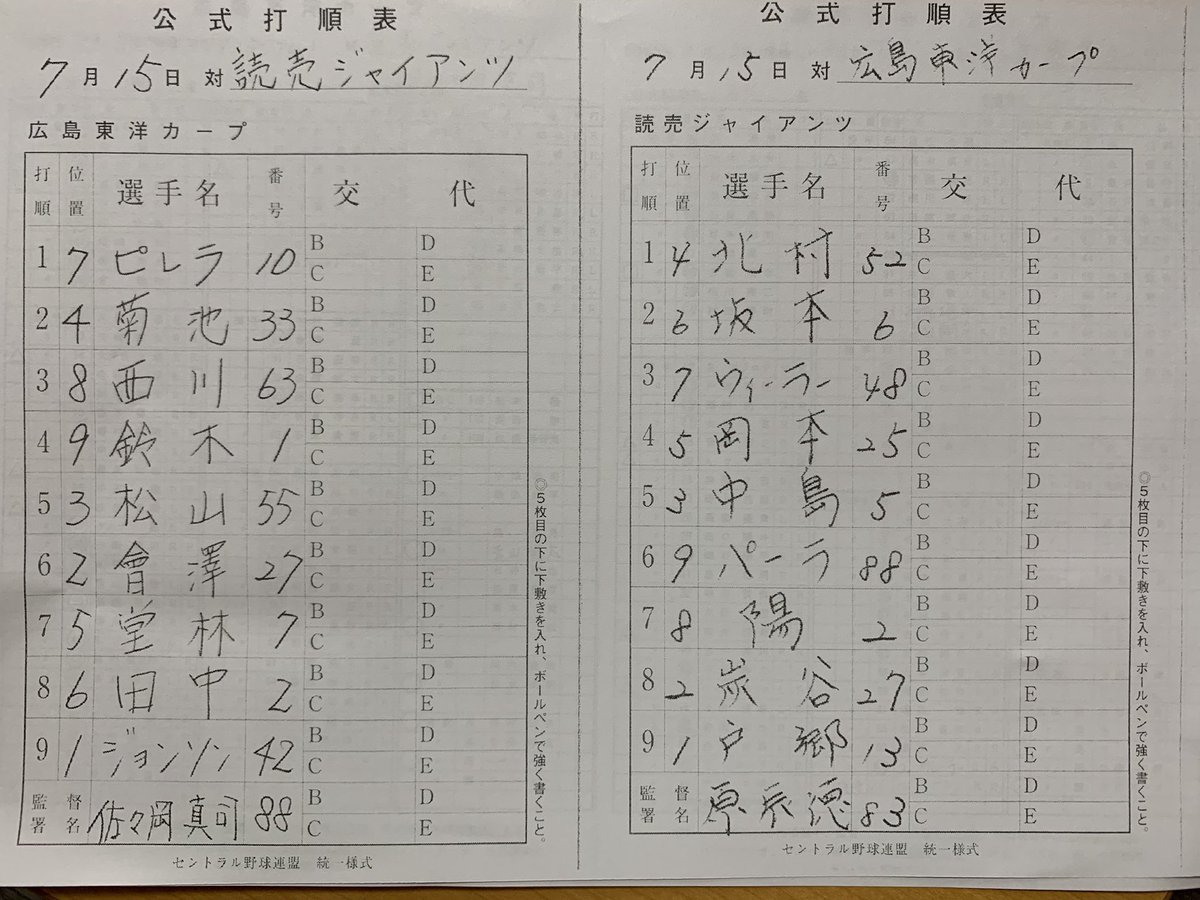 公式打順表
7月15日 対 読売ジャイアンツ
広島東洋カープ
打順 位置 選手名 番号 交代
1 7 ピレラ 10 B C D E
2 4 菊池 33 B C D E
3 8 西川 63 B C D E
4 9 鈴木 1 B C D E
5 3 松山 55 B C D E
6 2 會澤 27 B C D E
7 5 堂林 7 B C D E
8 6 田中 2 B C D E
9 1 ジョンソン 42 B C D E
監督署名 佐々岡真司 88 B C D E
◎5枚目の下に下敷きを入れ、ボールペンで強く書くこと。
セントラル野球連盟 統一様式
公式打順表
7月15日 対 広島東洋カープ
読売ジャイアンツ
打順 位置 選手名 番号 交代
1 4 北村 52 B C D E
2 6 坂本 6 B C D E
3 7 ウィーラー 48 B C D E
4 5 岡本 25 B C D E
5 3 中島 5 B C D E
6 9 パーラ 88 B C D E
7 8 陽 2 B C D E
8 2 炭谷 27 B C D E
9 1 戸郷 13 B C D E
監督署名 原辰徳 83 B C D E
◎5枚目の下に下敷きを入れ、ボールペンで強く書くこと。
セントラル野球連盟 統一様式